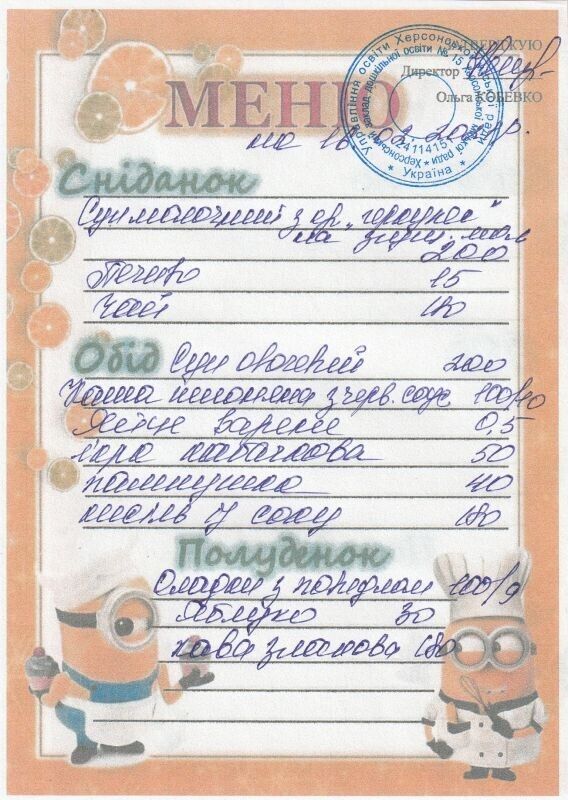 ЗАТВЕРДЖУЮ
Директор
Ольга КОБЕВКО
Управління освіти Херсонської міської ради
заклад дошкільної освіти № 15 Херсонської міської ради * Херсонський
* Україна *
МЕНЮ
на 16.02
Сніданок
Суп молочний з кр. "геркулес"
200
Печиво 15
Чай 180
Обід Суп овочевий 200
Каша пшоняна з черв. соус 100/40
Яйце варене 0,5
ікра кабачкова 50
пампушка 40
кисіль у соку 180
Полуденок
Оладки з повидлом 100/9
Яблуко 30
кава злакова 180